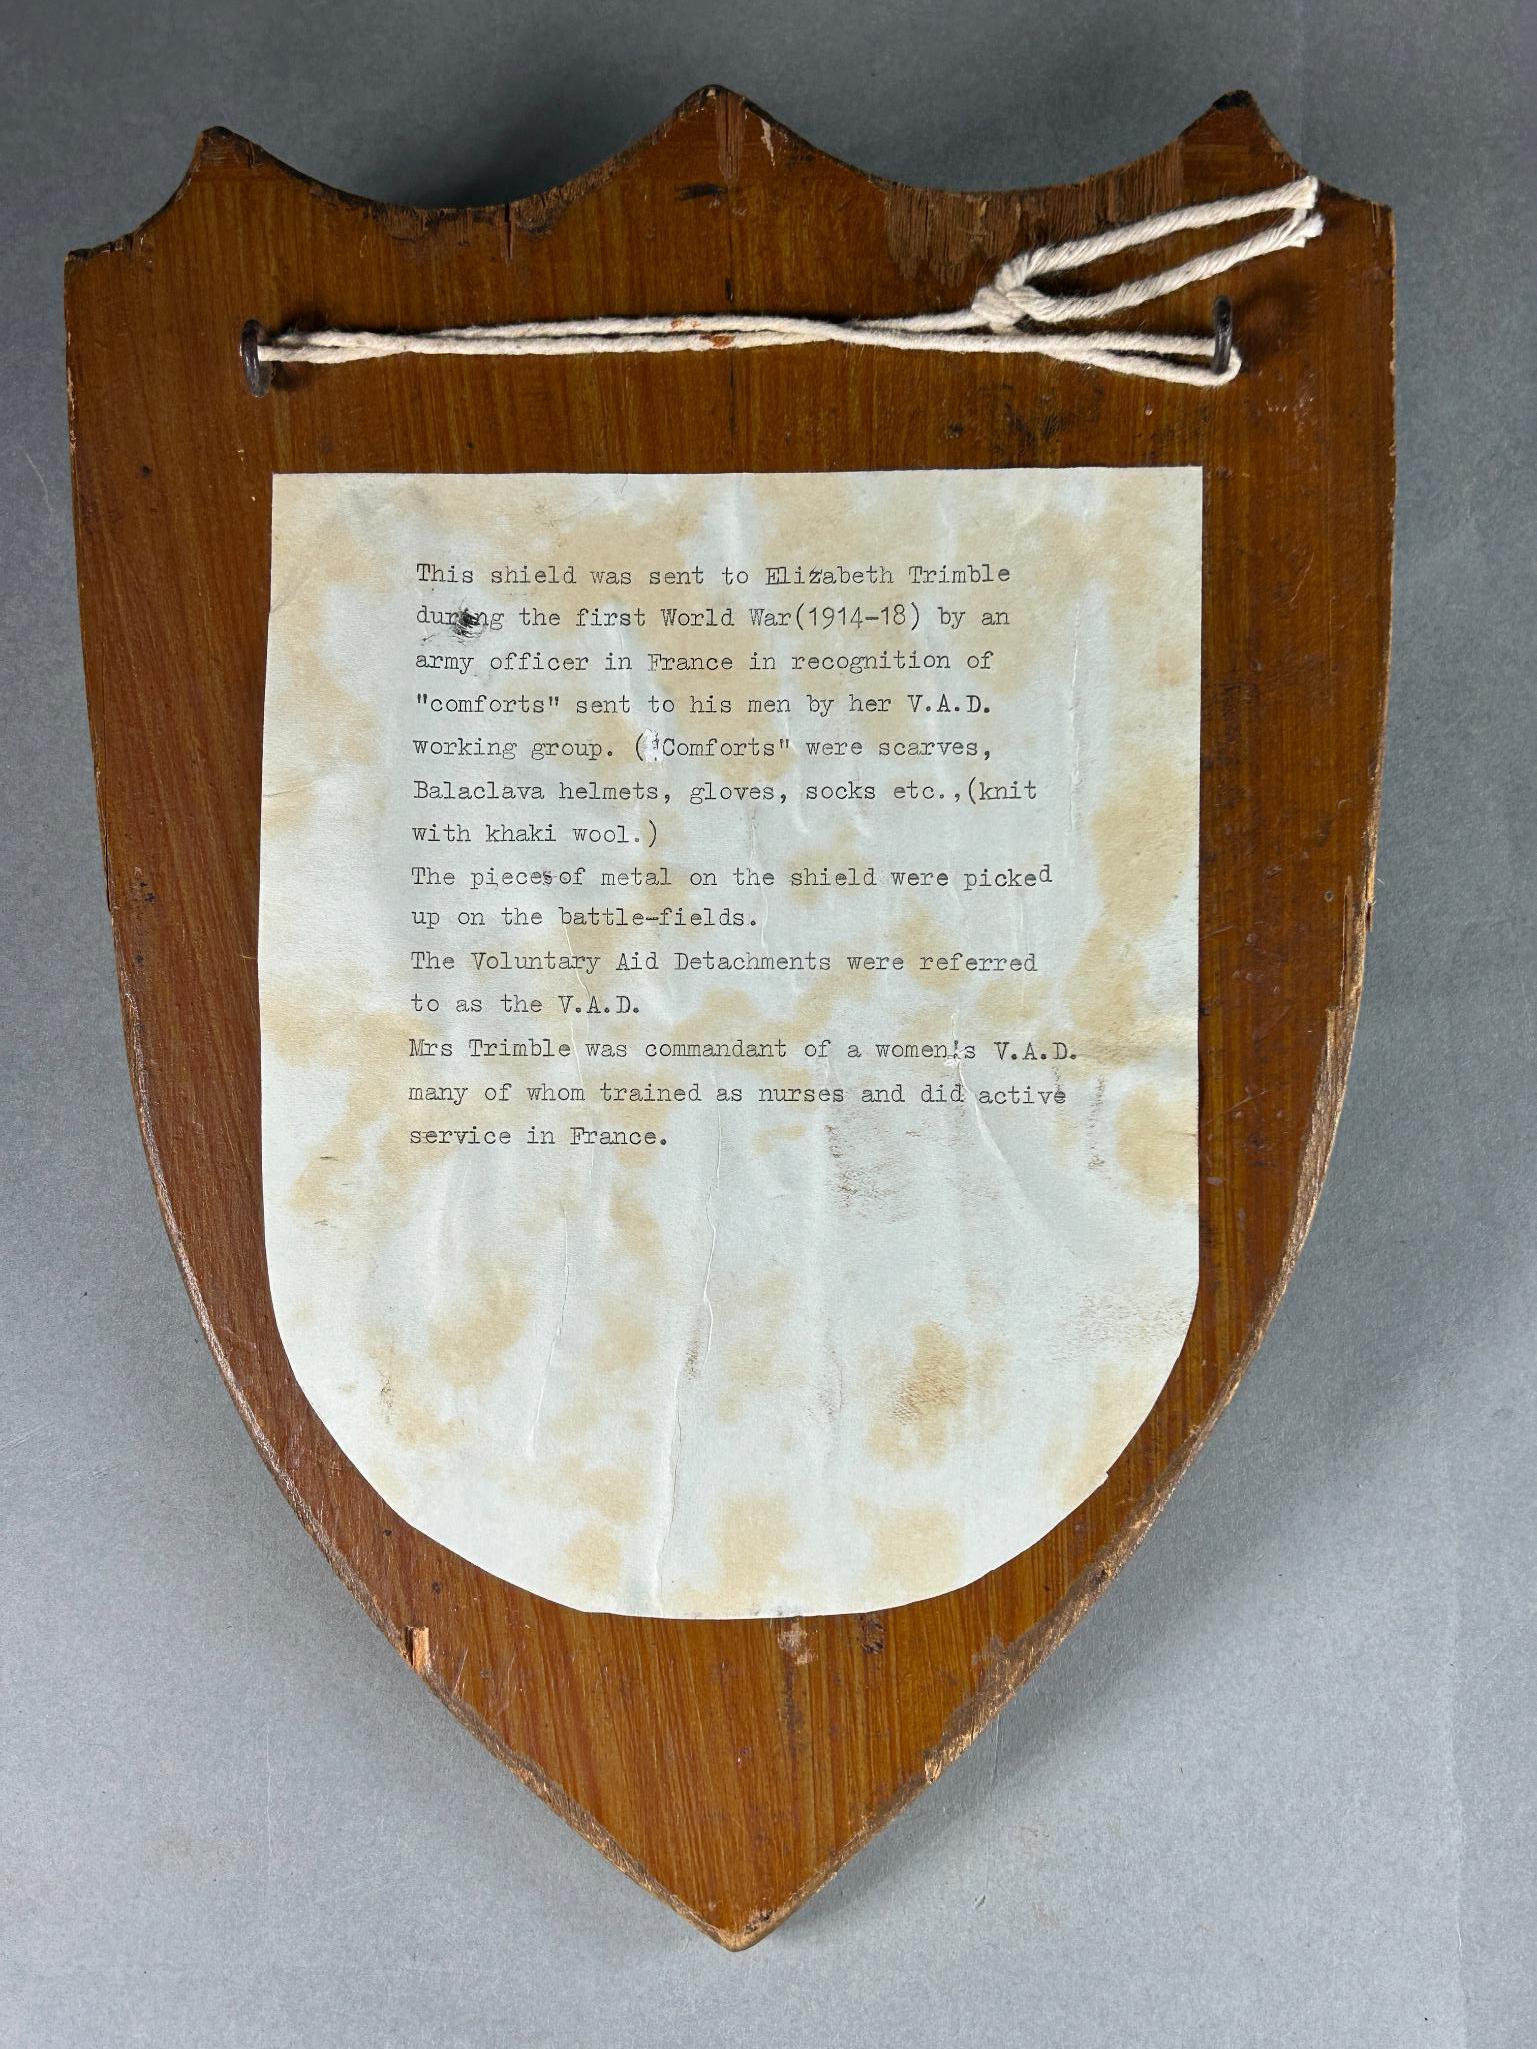 This shield was sent to Elizabeth Trimble
during the first World War(1914-18) by an
army officer in France in recognition of
"comforts" sent to his men by her V.A.D.
working group. ("Comforts" were scarves,
Balaclava helmets, gloves, socks etc.,(knit
with khaki wool.)
The pieces of metal on the shield were picked
up on the battle-fields.
The Voluntary Aid Detachments were referred
to as the V.A.D.
Mrs Trimble was commandant of a women's V.A.D.
many of whom trained as nurses and did active
service in France.